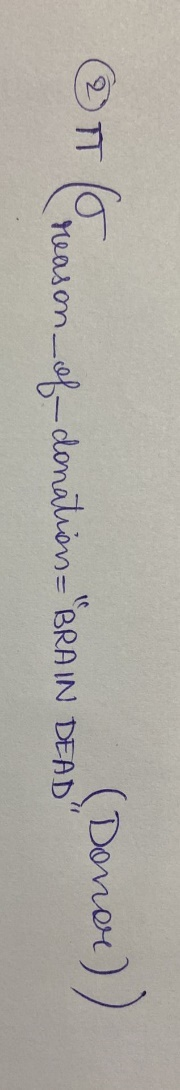 ② π (σ reason_of_donation="BRAIN DEAD" (Donor))